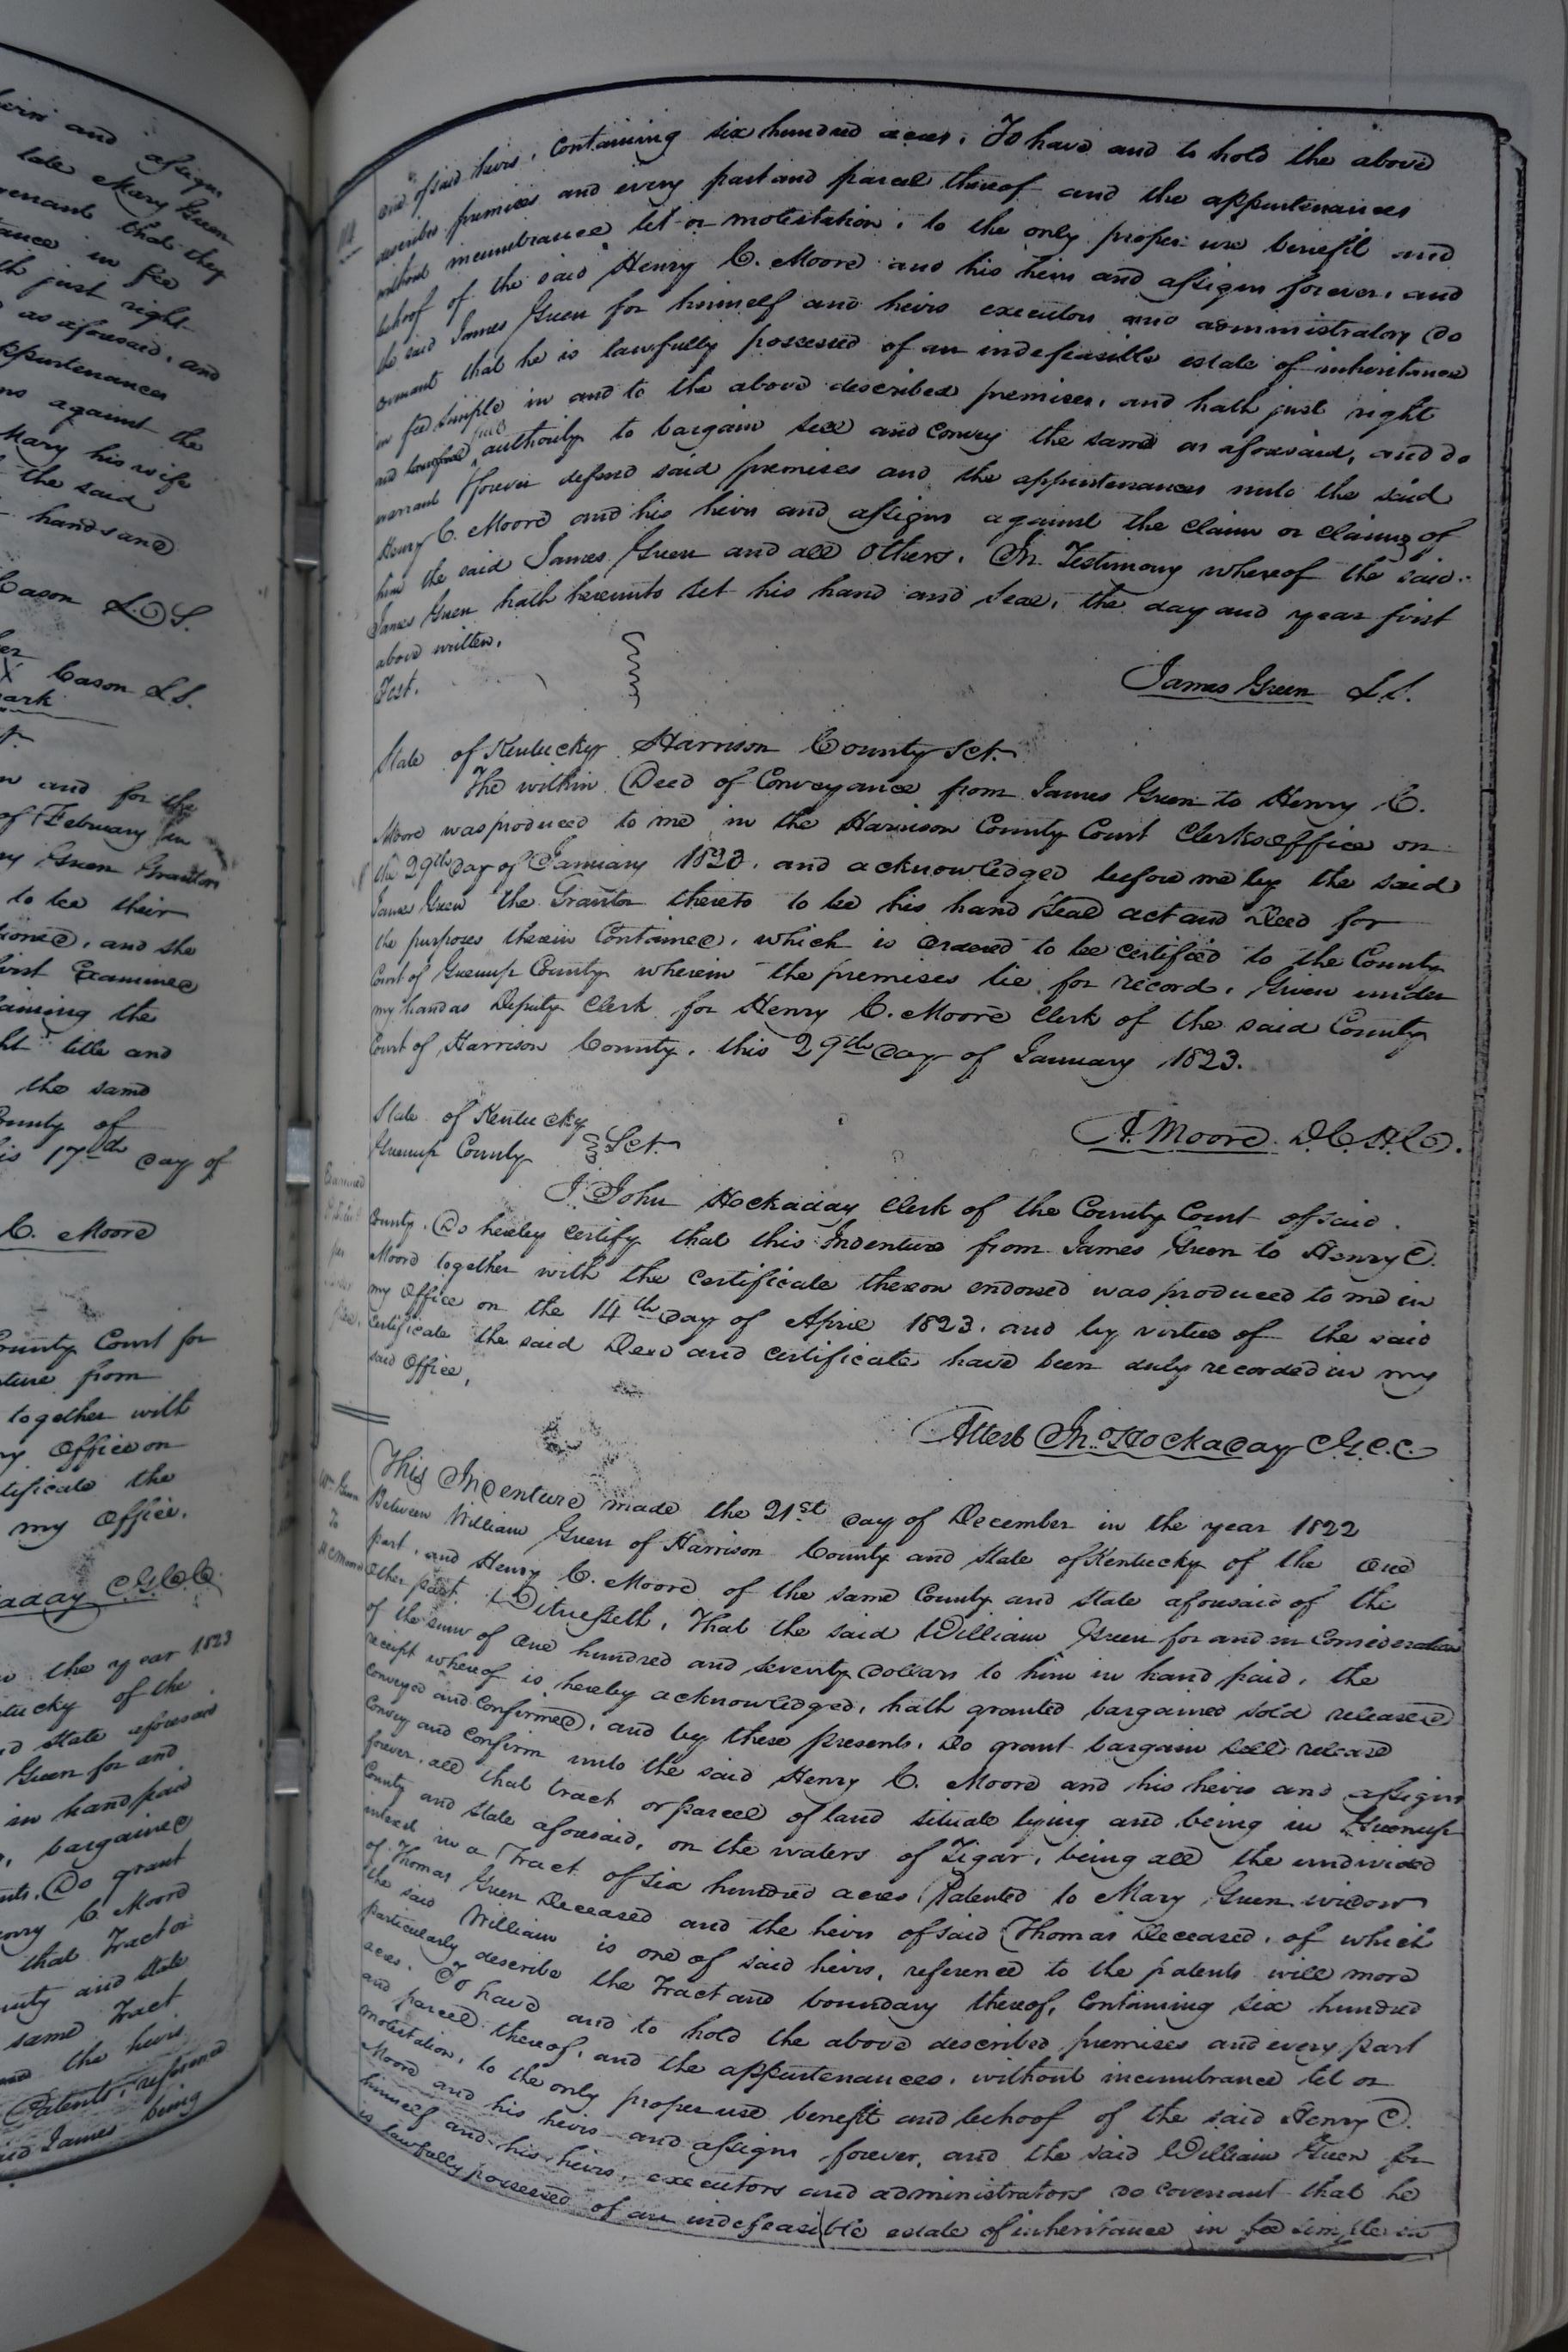 heirs and assigns
late Mary Green
covenant that they
in fee
just right
as aforesaid, and
appurtenances
against the
Mary his wife
the said
hands and
Cason L.S.
Cason L.S.
mark
and for the
of February in
Green Grantors
to be their
and she
first Examined
the
title and
the same
County of
17th day of
C. Moore
County Court for
from
together with
my Office on
certificate the
my Office.
C.G.C.C.
the year 1823
of the
State aforesaid
Green for and
in hand paid
bargained
Do grant
C. Moore
that Tract or
and State
same Tract
the heirs
Patents, reference
said James being
one of said heirs, Containing six hundred acres. To have and to hold the above
described premises and every part and parcel thereof and the appurtenances
without incumbrance let or molestation, to the only proper use benefit and
behoof of the said Henry C. Moore and his heirs and assigns forever, and
the said James Green for himself and heirs executors and administrators do
covenant that he is lawfully possessed of an indefeasible estate of inheritance
in fee simple in and to the above described premises, and hath just right
and lawful full authority to bargain sell and convey the same as aforesaid, and do
warrant & forever defend said premises and the appurtenances unto the said
Henry C. Moore and his heirs and assigns against the claim or claims of
him the said James Green and all others. In Testimony whereof the said
James Green hath hereunto set his hand and seal, the day and year first
above written.
Test.
James Green L.S.
State of Kentucky Harrison County Sct.
The within Deed of Conveyance from James Green to Henry C.
Moore was produced to me in the Harrison County Court Clerks office on
the 29th day of January 1823. and acknowledged before me by the said
James Green the Grantor thereto to be his hand Seal act and Deed for
the purposes therein Contained, which is ordered to be certified to the County
Court of Greenup County wherein the premises lie for record. Given under
my hand as Deputy Clerk for Henry C. Moore Clerk of the said County
Court of Harrison County, this 29th day of January 1823.
A. Moore D.C.H.C.
State of Kentucky
Greenup County Sct.
I John Hockaday Clerk of the County Court of said
County. Do hereby certify that this Indenture from James Green to Henry C.
Moore together with the certificate thereon endorsed was produced to me in
my Office on the 14th day of April 1823. and by virtue of the said
certificate the said Deed and certificate have been duly recorded in my
said Office,
Attest Jno. Hockaday C.G.C.C.
Wm Green
To
H C Moore
This Indenture made the 21st day of December in the year 1822
Between William Green of Harrison County and State of Kentucky of the one
part, and Henry C. Moore of the same County and State aforesaid of the
Other part. Witnesseth, That the said William Green for and in Consideration
of the sum of One hundred and seventy Dollars to him in hand paid, the
receipt whereof is hereby acknowledged, hath granted bargained sold released
conveyed and Confirmed, and by these presents, do grant bargain sell release
Convey and Confirm unto the said Henry C. Moore and his heirs and assigns
forever, all that tract or parcel of land situate lying and being in Greenup
County and State aforesaid, on the waters of Tigar, being all the undivided
interest in a Tract of six hundred acres Patented to Mary Green widow
of Thomas Green Deceased and the heirs of said Thomas Deceased, of which
the said William is one of said heirs, reference to the patents will more
particularly describe the Tract and boundary thereof, Containing six hundred
acres. To have and to hold the above described premises and every part
and parcel thereof, and the appurtenances, without incumbrance let or
molestation, to the only proper use benefit and behoof of the said Henry C.
Moore and his heirs and assigns forever, and the said William Green for
himself and his heirs, executors and administrators do covenant that he
is lawfully possessed of an indefeasible estate of inheritance in fee simple in